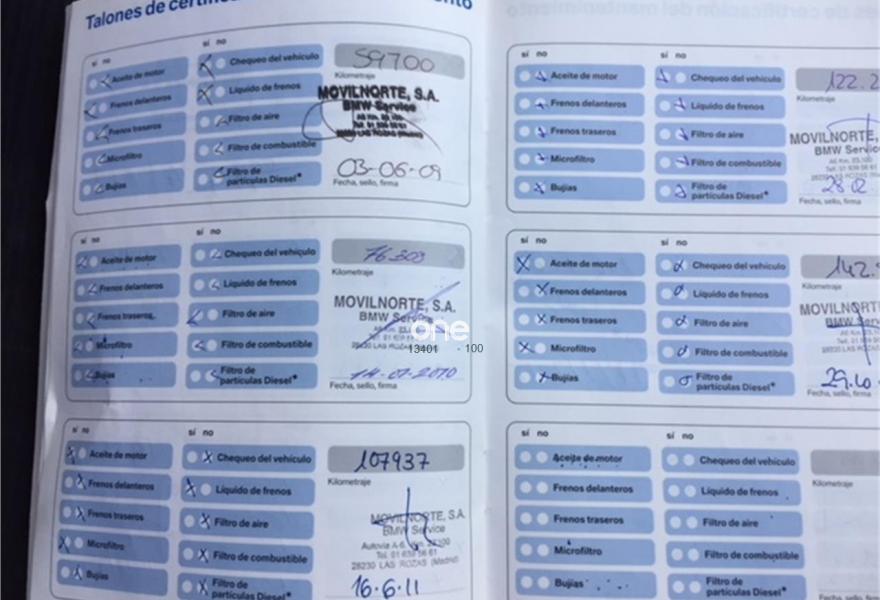 Talones de
sí no
Aceite de motor
Frenos delanteros
Frenos traseros
Microfiltro
Bujías
sí no
Chequeo del vehículo
Líquido de frenos
Filtro de aire
Filtro de combustible
Filtro de
partículas Diesel*
59700
Kilometraje
MOVILNORTE, S.A.
BMW Service
03-06-09
Fecha, sello, firma
sí no
Aceite de motor
Frenos delanteros
Frenos traseros
Microfiltro
Bujías
sí no
Chequeo del vehículo
Líquido de frenos
Filtro de aire
Filtro de combustible
Filtro de
partículas Diesel*
Kilometraje
MOVILNORTE, S.A.
BMW Service
one
13401 100
Fecha, sello, firma
sí no
Aceite de motor
Frenos delanteros
Frenos traseros
Microfiltro
Bujías
sí no
Chequeo del vehículo
Líquido de frenos
Filtro de aire
Filtro de combustible
Filtro de
partículas Diesel*
107937
Kilometraje
MOVILNORTE, S.A.
BMW Service
28230 LAS ROZAS (Madrid)
16.6.11
sí no
Aceite de motor
Frenos delanteros
Frenos traseros
Microfiltro
Bujías
sí no
Chequeo del vehículo
Líquido de frenos
Filtro de aire
Filtro de combustible
Filtro de
partículas Diesel*
122.2
Kilometraje
MOVILNORTE,
BMW Service
28-02
Fecha, sello, firma
sí no
Aceite de motor
Frenos delanteros
Frenos traseros
Microfiltro
Bujías
sí no
Chequeo del vehículo
Líquido de frenos
Filtro de aire
Filtro de combustible
Filtro de
partículas Diesel*
142.
Kilometraje
MOVILNORTE
BMW Service
29.10
Fecha, sello, firma
sí no
Aceite de motor
Frenos delanteros
Frenos traseros
Microfiltro
Bujías
sí no
Chequeo del vehículo
Líquido de frenos
Filtro de aire
Filtro de combustible
Filtro de
partículas Diesel*
Kilometraje